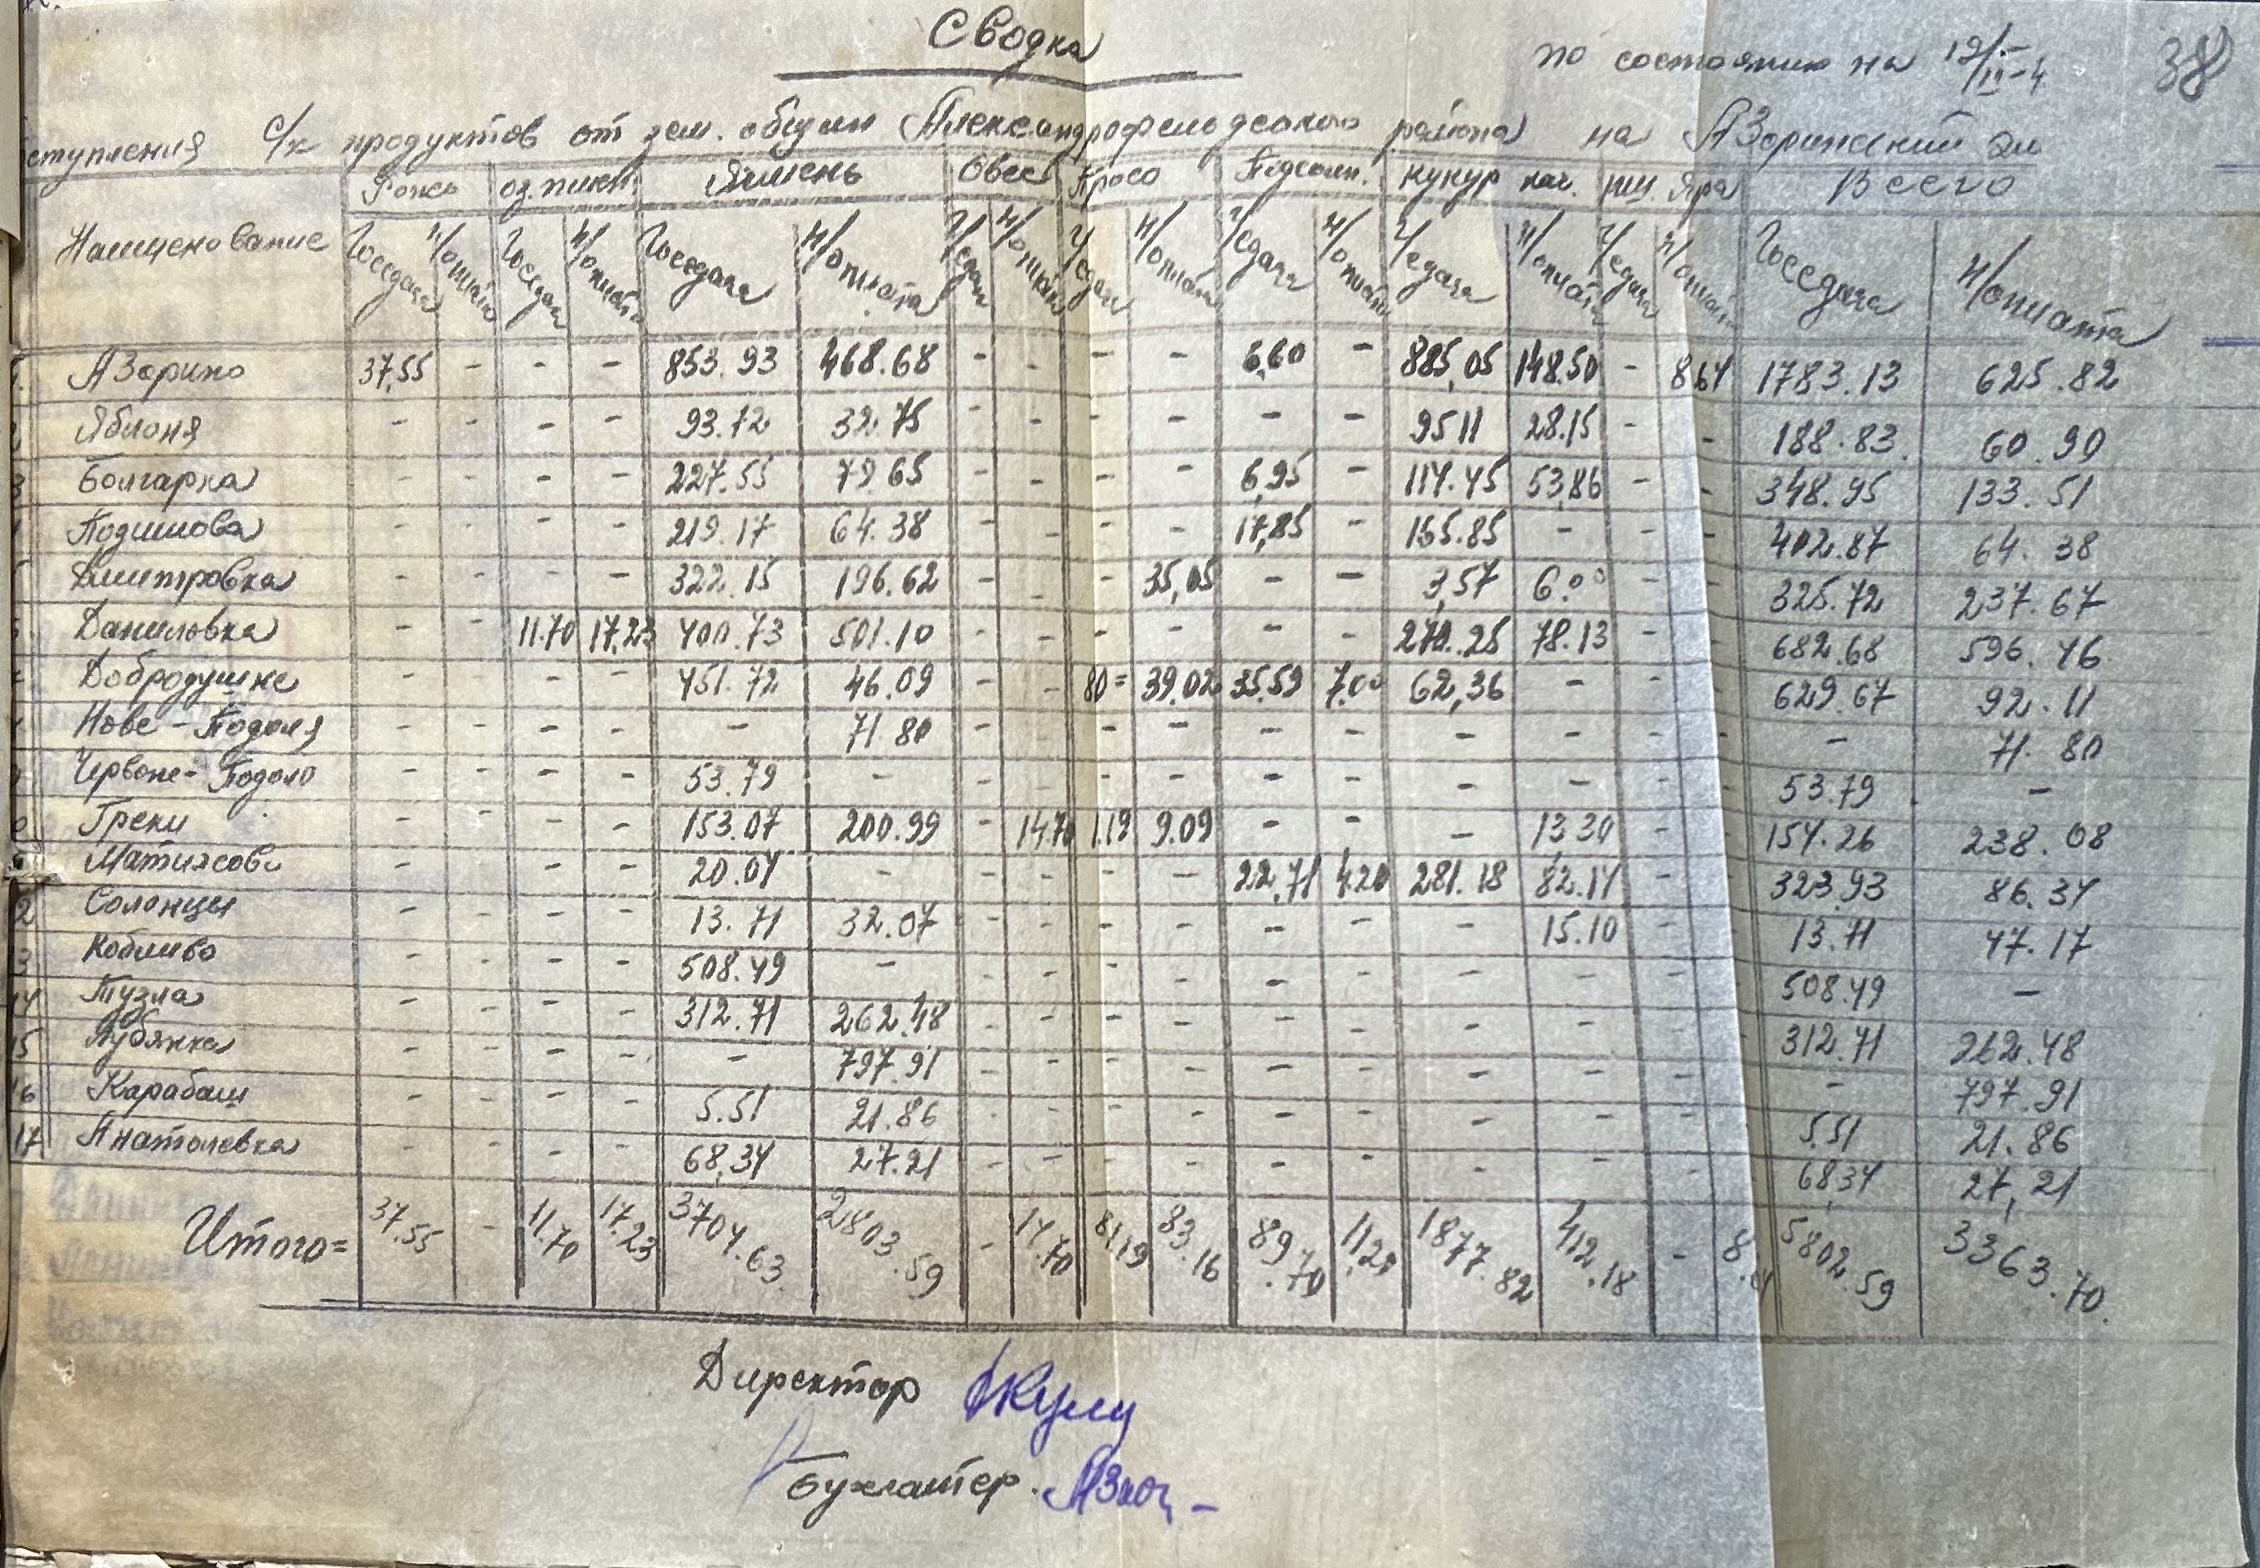 Сводка
по состоянию на
38
ступления с/х продуктов от зем. общин Александрофельдского района на Азоринский
Наименование Рожь оз. пшен. Ячмень Овес Просо Подсолн. кукур кач. пш. яра Всего
Госсдача Н/оплата Госсдача Н/оплата Госсдача Н/оплата Г/сдача Н/оплата Г/сдача Н/оплата Г/сдача Н/оплата Г/сдача Н/оплата Г/сдача Н/оплата Госсдача Н/оплата
1. Азорино 37,55 - - - 853.93 468.68 - - - - 6,60 - 885,05 148.50 - 8,64 1783.13 625.82
Яблоня - - - - 93.72 32.75 - - - - - - 95 11 28.15 - - 188.83. 60.90
3 Болгарка - - - - 227.55 79.65 - - - - 6,95 - 114.45 53,86 - - 348.95 133.51
- - - - 219.17 64.38 - - - - 17,85 - 165.85 - - - 402.87 64.38
Дмитровка - - - - 322.15 196.62 - - - 35,05 - - 3,57 6.00 - 325.72 237.67
Даниловка - - 11.70 17,23 400.73 501.10 - - - - - - 270.25 78.13 - 682.68 596.46
Добродушне - - - - 451.72 46.09 - - 80= 39.02 35.59 7.00 62,36 - - - 629.67 92.11
Нове-Подоля - - - - - 71.80 - - - - - - - - - - - 71.80
Червоне-Подоло - - - - 53.79 - - - - - - - - - - - 53.79 -
Греки - - - - 153.07 200.99 - 14.70 1.19 9.09 - - - 13 30 - - 154.26 238.08
Матиясово - - - - 20.04 - - - - - 22,71 4.20 281.18 82.14 - - 323.93 86.34
2 Солонцы - - - - 13.71 32.07 - - - - - - - 15.10 - - 13.71 47.17
3 Кобливо - - - - 508.49 - - - - - - - - - - - 508.49 -
14 Тузла - - - - 312.71 262.48 - - - - - - - - - - 312.71 262.48
15 Лубянка - - - - - 797.91 - - - - - - - - - - - 797.91
16 Карабаш - - - - 5.51 21.86 - - - - - - - - - - 5.51 21.86
17 Анатолевка - - - - 68,34 27.21 - - - - - - - - - - 68,34 27,21
Итого= 37.55 - 11.70 17.23 3704.63. 2803.59 - 14.70 81.19 83.16 89.70 11,20 1877.82 412.18 - 8.64 5802.59 3363.70.
Директор
Бухгалтер.